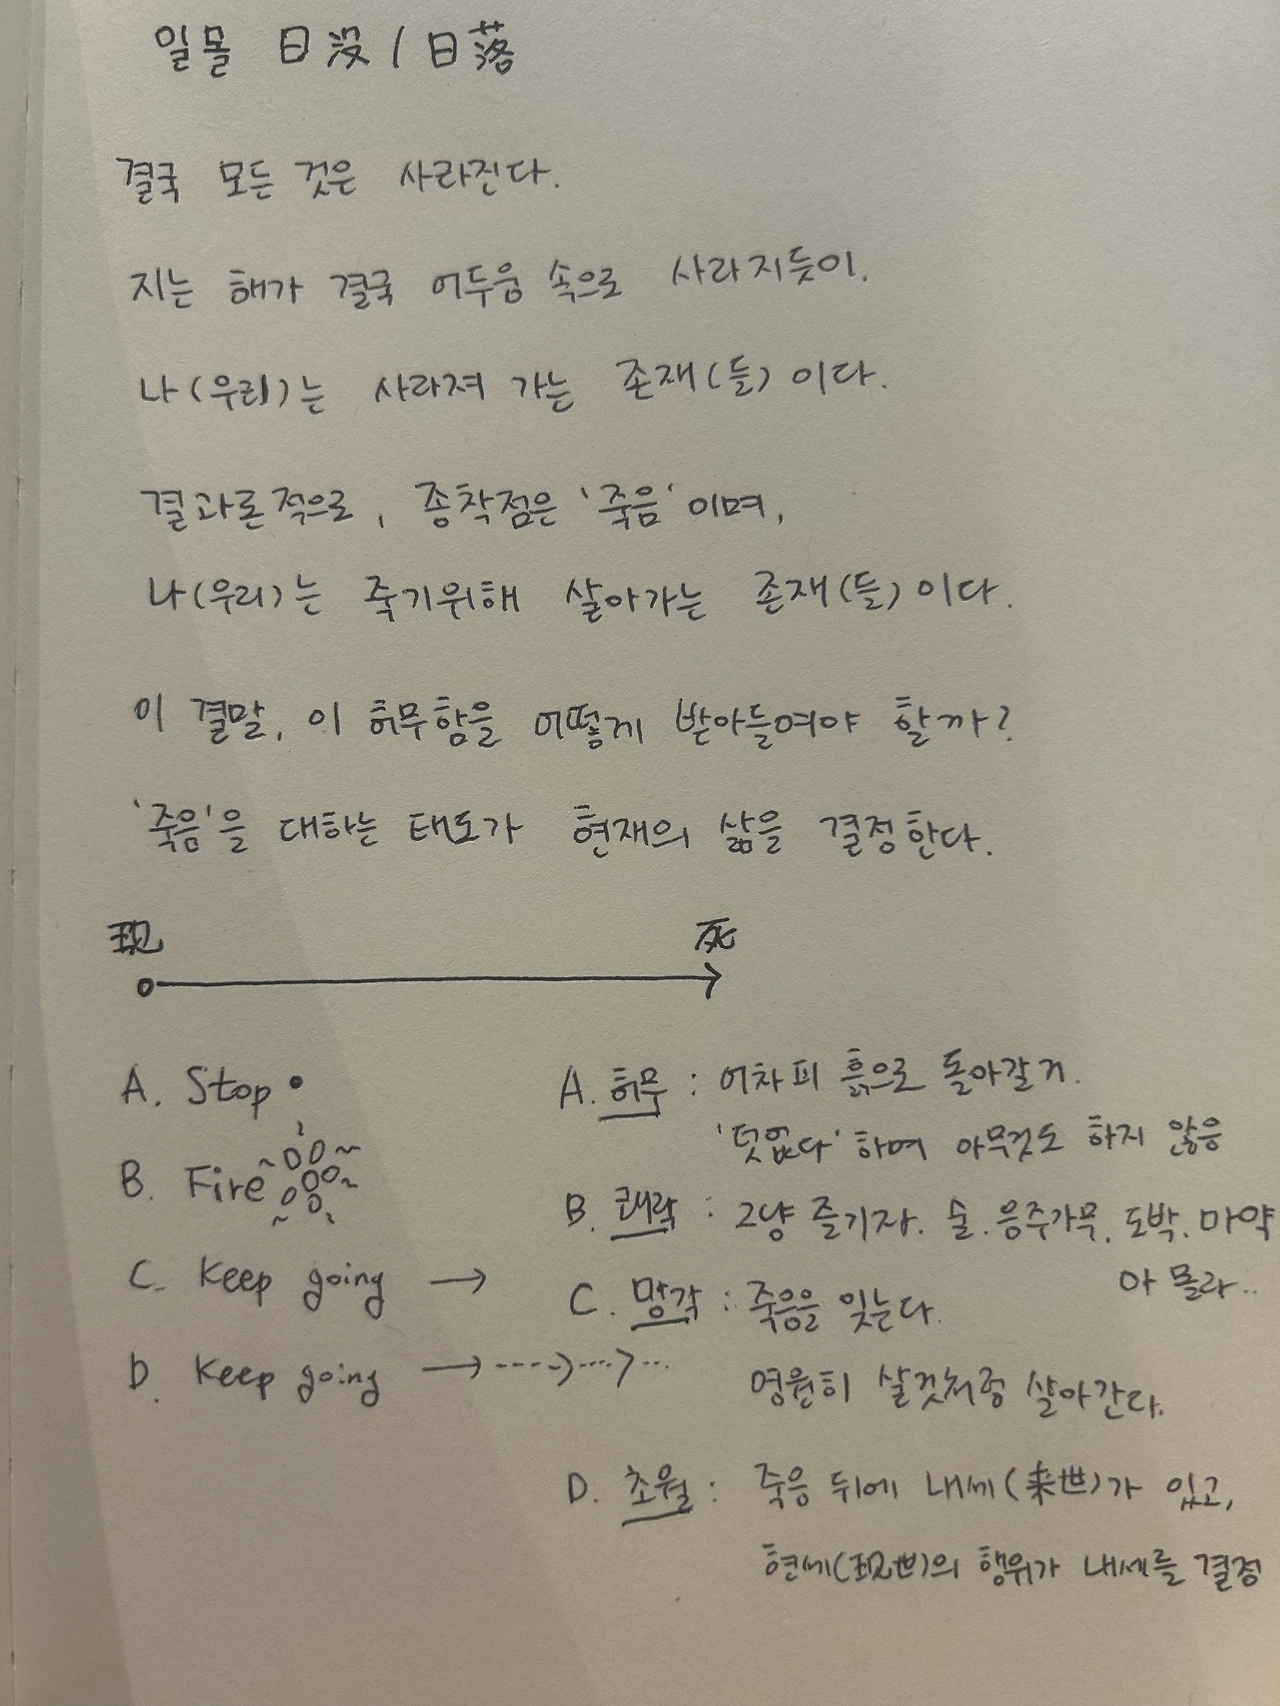 일몰 日没 / 日落
결국 모든 것은 사라진다.
지는 해가 결국 어두움 속으로 사라지듯이.
나(우리)는 사라져 가는 존재(들)이다.
결과론적으로, 종착점은 '죽음'이며,
나(우리)는 죽기위해 살아가는 존재(들)이다.
이 결말, 이 허무함을 어떻게 받아들여야 할까?
'죽음'을 대하는 태도가 현재의 삶을 결정한다.
現 死
A. Stop
B. Fire
C. Keep going →
D. Keep going →
A. 허무 : 어차피 흙으로 돌아갈거.
'덧없다'하며 아무것도 하지 않음
B. 쾌락 : 그냥 즐기자. 술. 음주가무. 도박. 마약
아 몰라..
C. 망각 : 죽음을 잊는다.
영원히 살것처럼 살아간다.
D. 초월 : 죽음 뒤에 내세(来世)가 있고,
현세(現世)의 행위가 내세를 결정